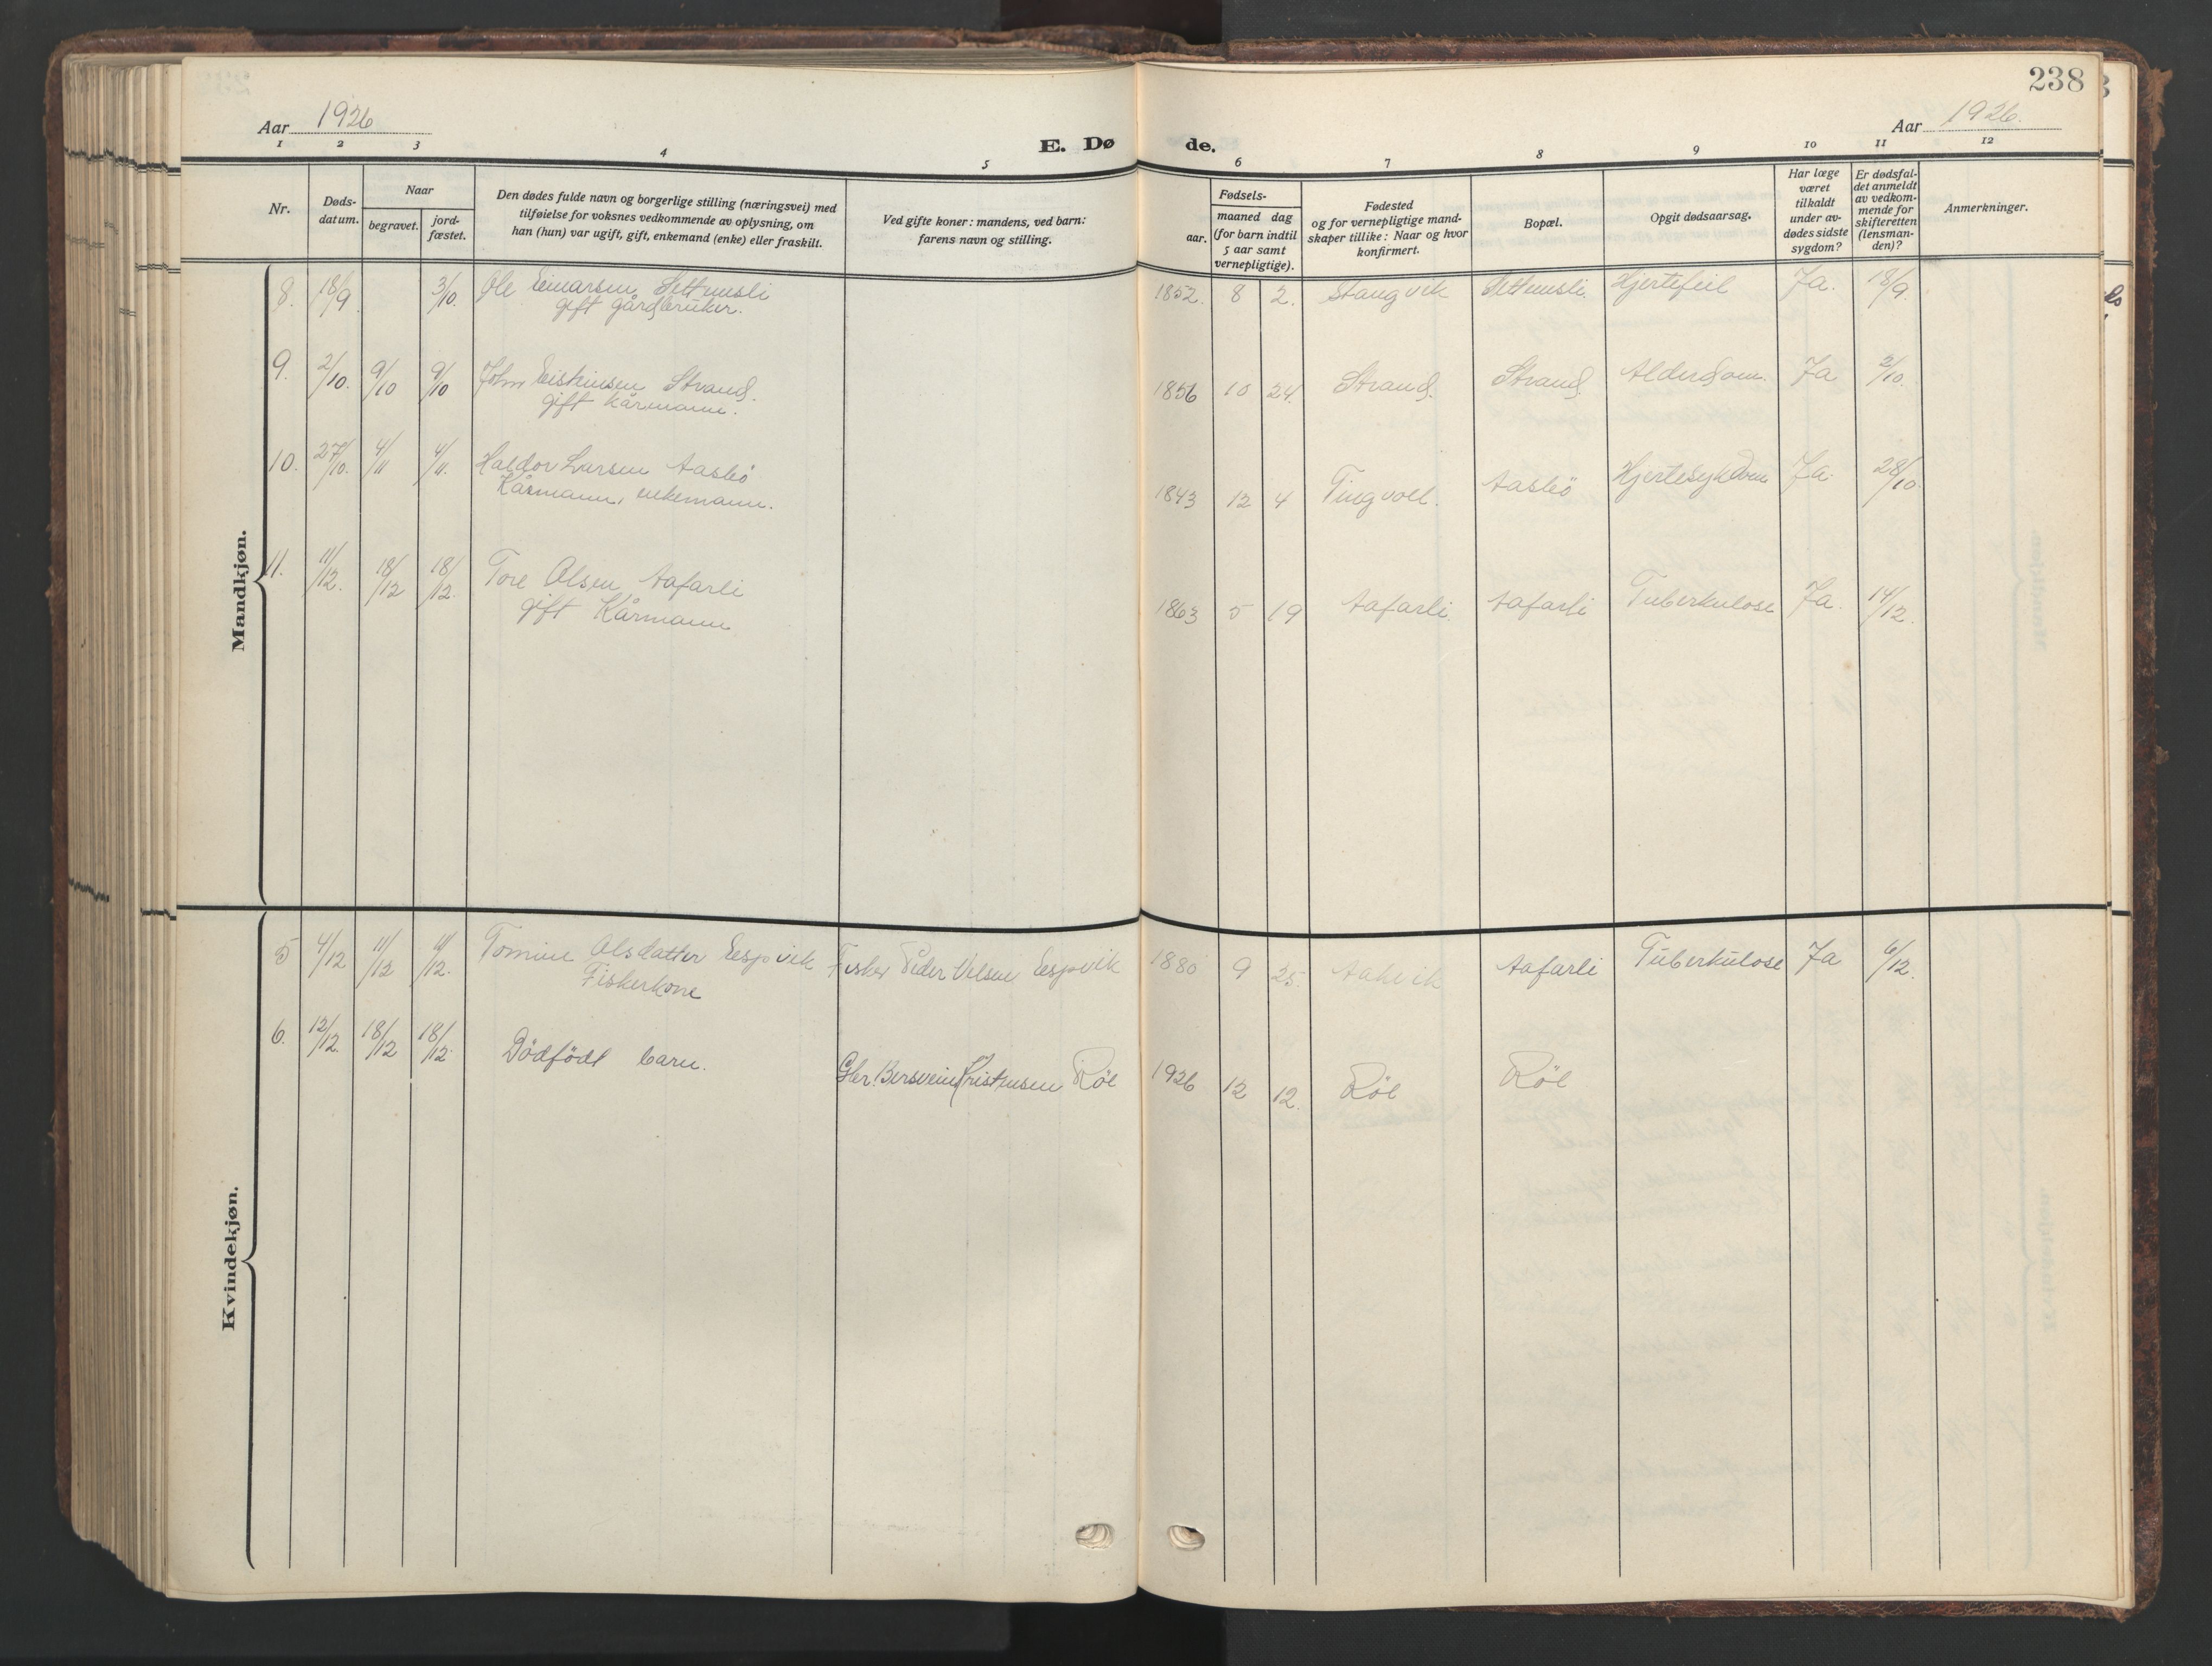 238
Aar 1926
Aar 1926.
E. Dø de.
1 2 3 4 5 6 7 8 9 10 11 12
Nr.
Døds-
datum.
Naar
begravet.
jord-
fæstet.
Den dødes fulde navn og borgerlige stilling (næringsvei) med
tilføielse for voksnes vedkommende av oplysning, om
han (hun) var ugift, gift, enkemand (enke) eller fraskilt.
Ved gifte koner: mandens, ved barn:
farens navn og stilling.
Fødsels-
aar.
maaned dag
(for barn indtil
5 aar samt
vernepligtige).
Fødested
og for vernepligtige mand-
skaper tillike: Naar og hvor
konfirmert.
Bopæl.
Opgit dødsaarsag.
Har læge
været
tilkaldt
under av-
dødes sidste
sygdom?
Er dødsfal-
det anmeldt
av vedkom-
mende for
skifteretten
(lensman-
den)?
Anmerkninger.
Mandkjøn.
8. 18/9 3/10. Ole Einarsen Settemsli 1852. 8 2. Stangvik Settemsli Hjertefeil Ja. 18/9.
gift gårdbruker.
9. 2/10. 9/10 9/10 John Eistensen Strand. 1856 10 24. Strand. Strand. Alderdom. Ja 2/10.
gift kårmann.
10. 27/10. 4/11 4/11. Haldor Larsen Aasbö 1843 12 4 Tingvoll. Aasbö Hjertesykdom Ja. 28/10.
Kårmann, enkemann.
11. 11/12. 18/12 18/12. Tore Olsen Aafarli 1863 5 19 Aafarli. Aafarli Tuberkulose Ja. 14/12.
gift Kårmann
Kvindekjøn.
5 4/12 11/12 11/12. Tomine Olsdatter Espvik Fisker Peder Espvik 1880 9 25. Aakvik Aafarli Tuberkulose Ja 6/12.
Fiskerkone
6. 12/12. 18/12 18/12. Dödfödt barn. Gbr. Bersvein Kristensen Röe 1926 12 12. Röe Röe